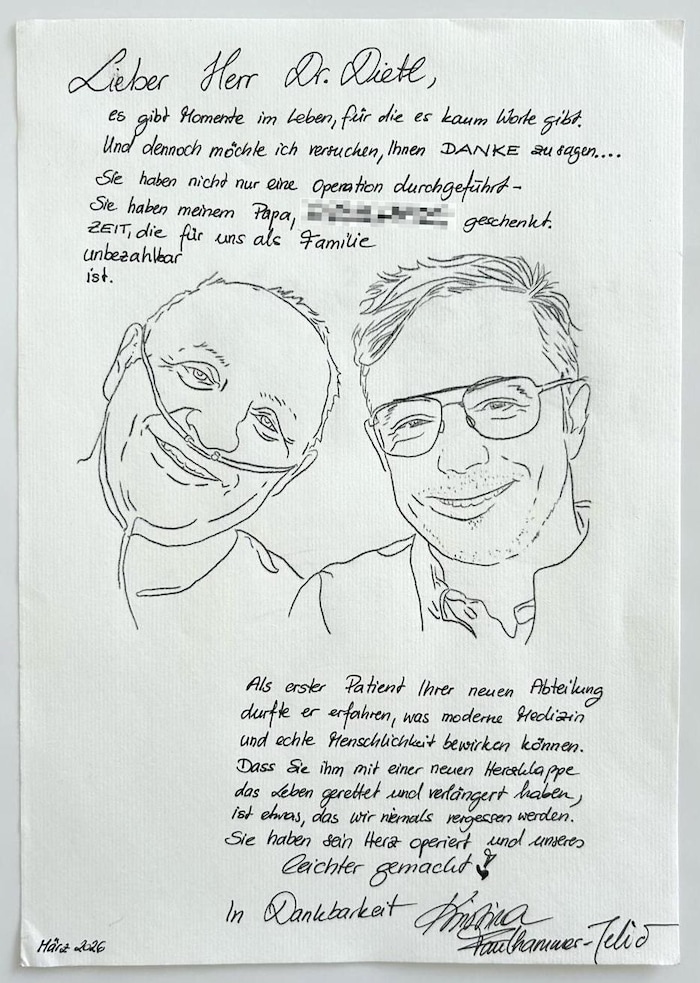 Lieber Herr Dr. Dietl,
es gibt Momente im Leben, für die es kaum Worte gibt.
Und dennoch möchte ich versuchen, Ihnen DANKE zu sagen....
Sie haben nicht nur eine Operation durchgeführt -
Sie haben meinem Papa, geschenkt.
ZEIT, die für uns als Familie
unbezahlbar
ist.
Als erster Patient Ihrer neuen Abteilung
durfte er erfahren, was moderne Medizin
und echte Menschlichkeit bewirken können.
Dass Sie ihm mit einer neuen Herzklappe
das Leben gerettet und verlängert haben,
ist etwas, das wir niemals vergessen werden.
Sie haben sein Herz operiert und unseres
leichter gemacht!
In Dankbarkeit Kristina
Faulhammer-
März 2026